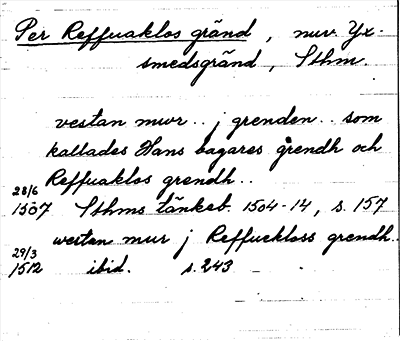 Per Reffuaklos gränd, nuv. Yx-
smedsgränd, Sthm.
vestan mwr.. j grenden.. som
kallades Hans bagares grendh och
Reffuaklos grendh..
28/6
1507 Sthms tänkeb. 1504-14, s. 157
westan mur j Reffuekloss grendh..
29/3
1512 ibid. s. 243